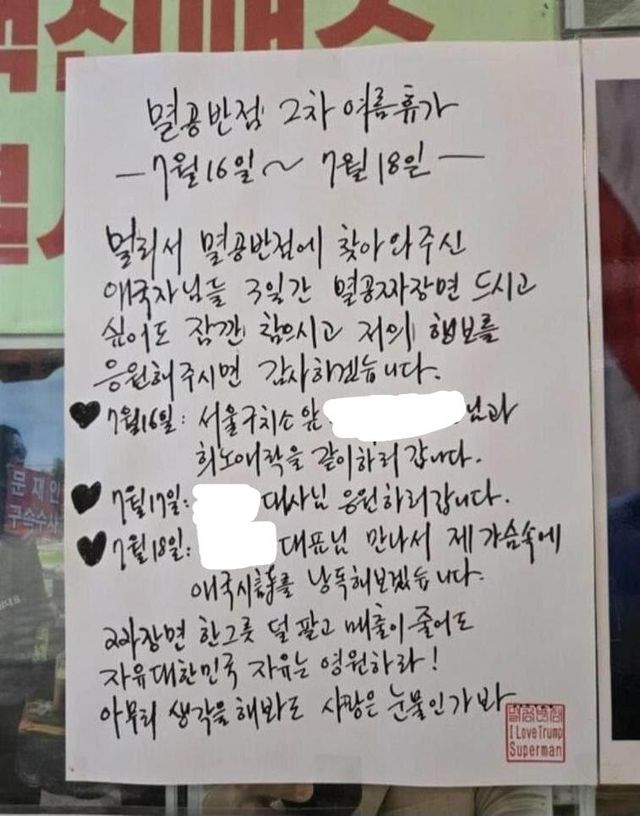 멸공반점 2차 여름휴가
— 7월 16일 ~ 7월 18일 —
멀리서 멸공반점에 찾아와주신
애국자님들 3일간 멸공짜장면 드시고
싶어도 잠깐 참으시고 저의 행보를
응원해주시면 감사하겠습니다.
♥ 7월16일: 서울구치소 앞 님과
희노애락을 같이하러 갑니다.
♥ 7월17일: 대사님 응원하러갑니다.
♥ 7월18일: 대표님 만나서 제 가슴속에
애국시詩를 낭독해보겠습니다.
짜장면 한그릇 덜 팔고 매출이 줄어도
자유대한민국 자유는 영원하라!
아무리 생각을 해봐도 사랑은 눈물인가봐
멸공반점
I Love Trump
Superman
문재인
구속수사